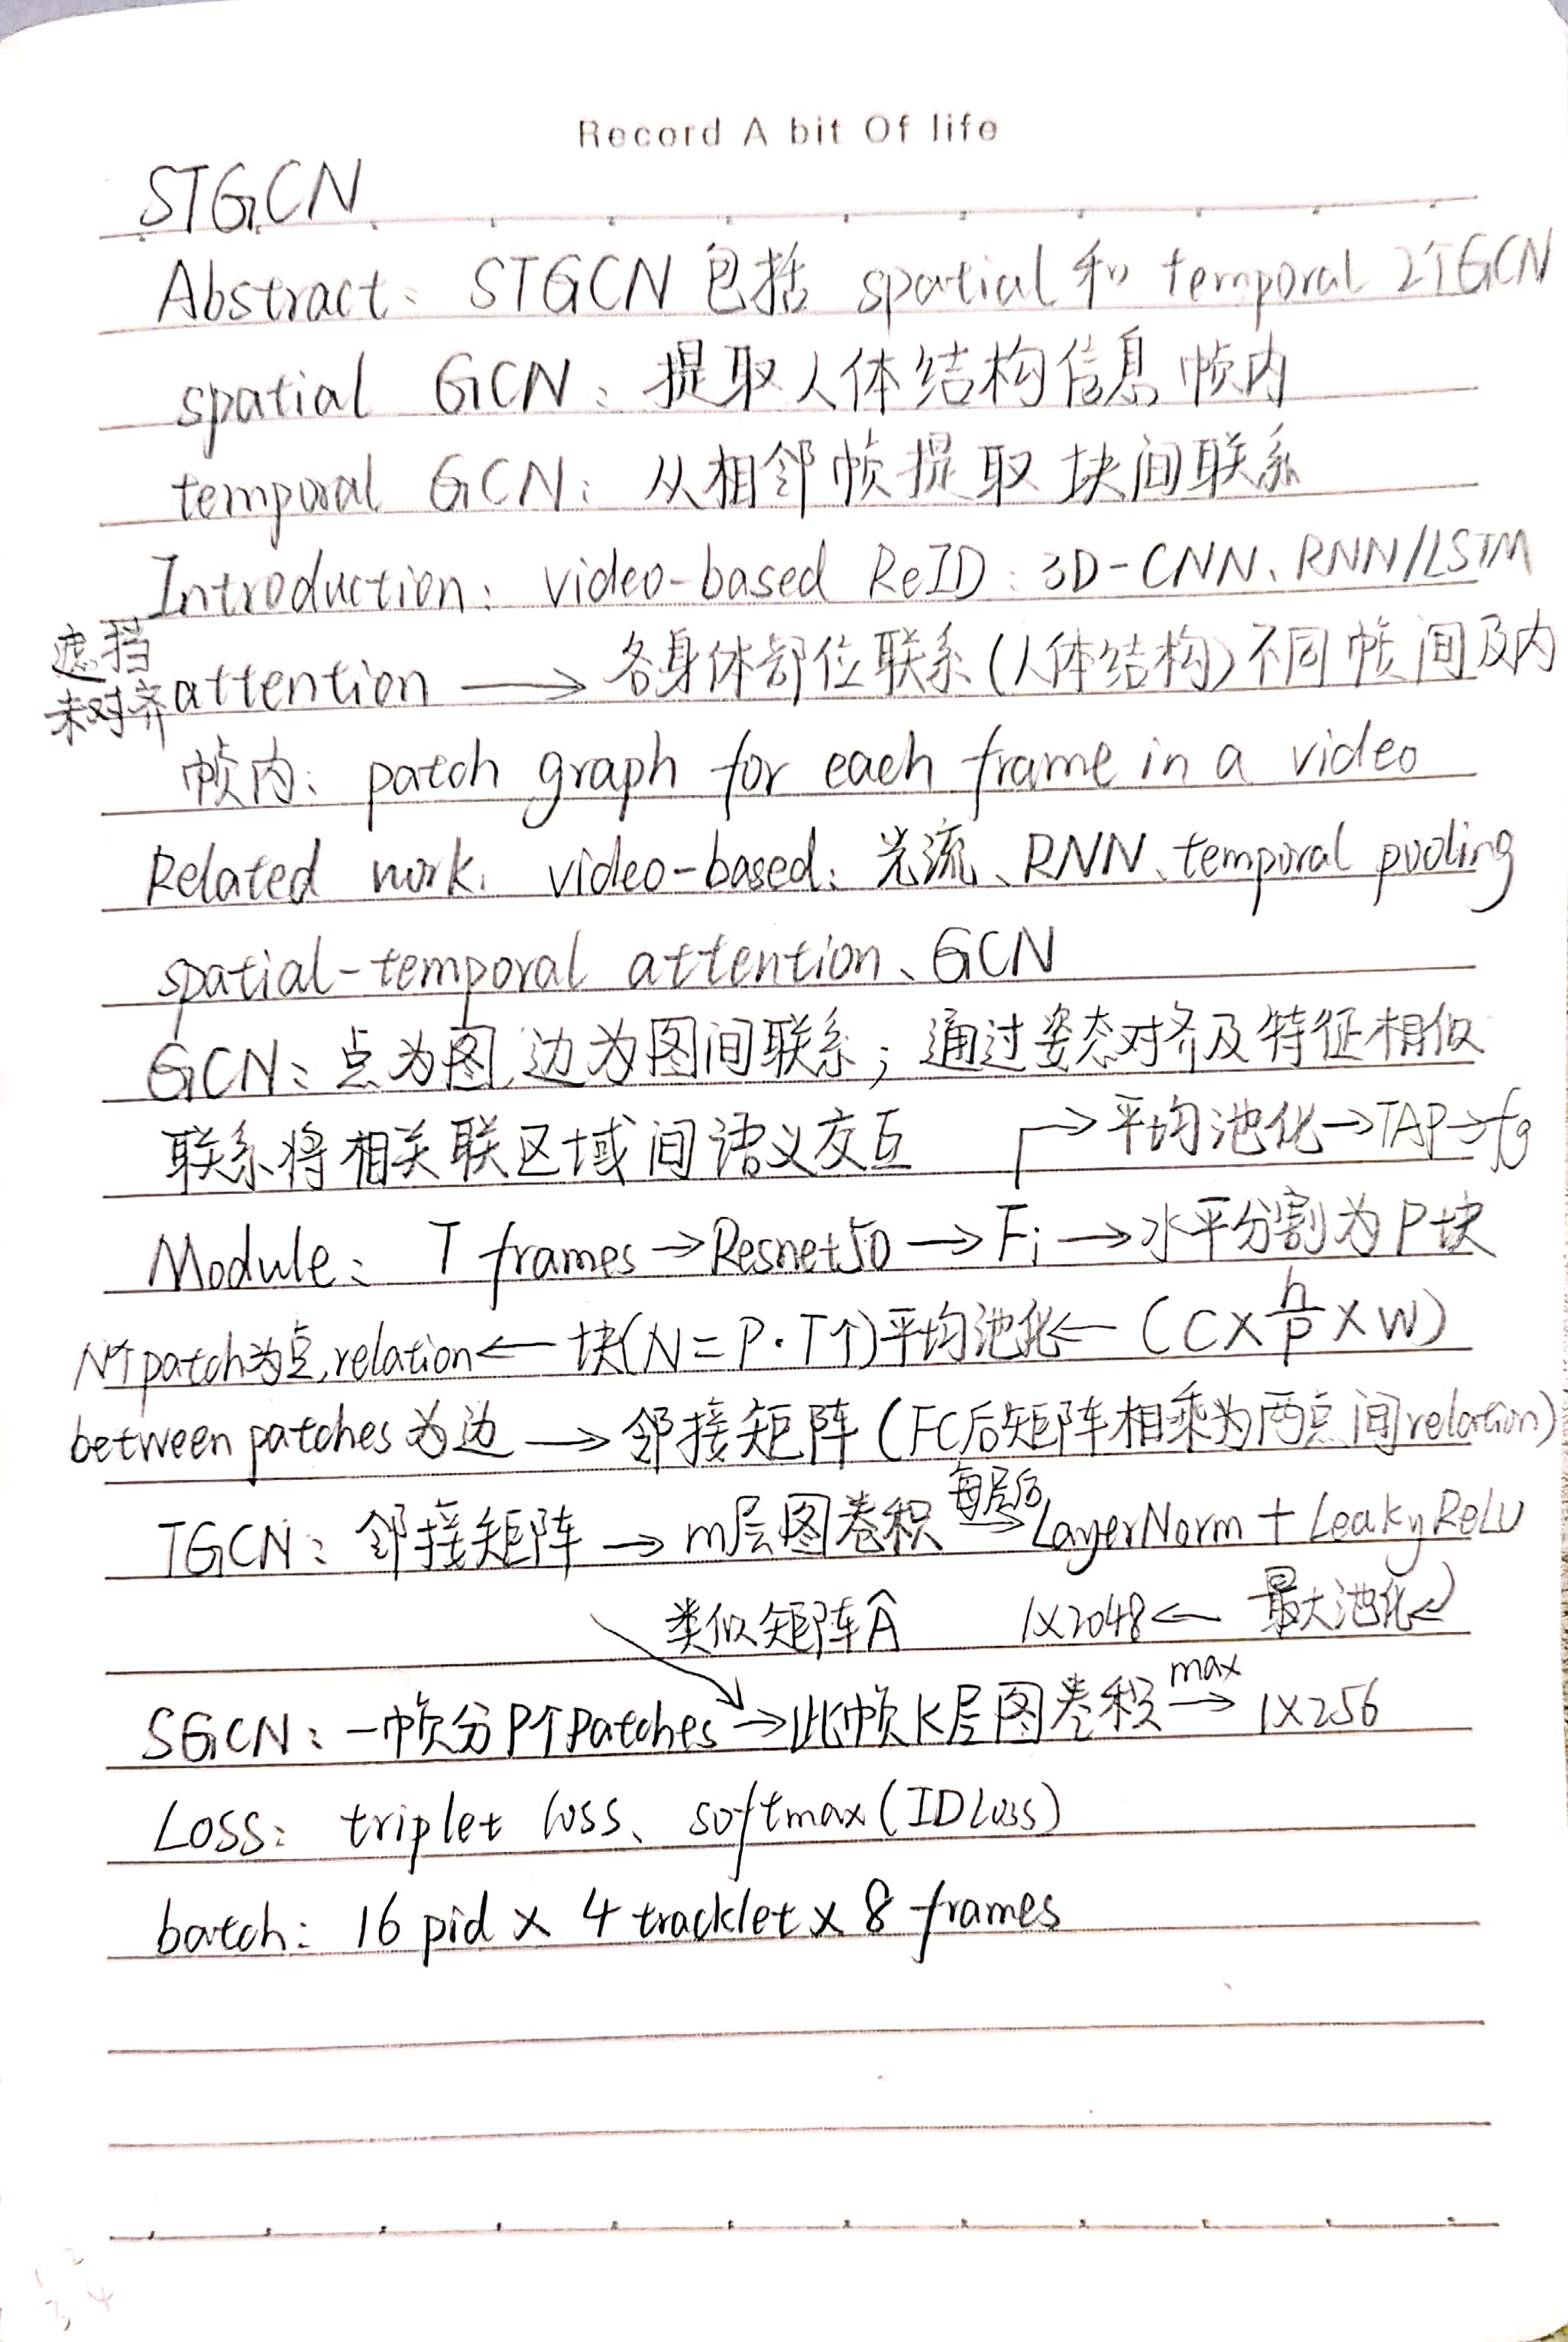 Record A bit Of life
STGCN
Abstract: STGCN 包括 spatial 和 temporal 2个GCN
spatial GCN: 提取人体结构信息 帧内
temporal GCN: 从相邻帧提取 块间联系
Introduction: video-based ReID: 3D-CNN、RNN/LSTM
遮挡
未对齐 attention → 各身体部位联系(人体结构)不同帧间及内
帧内: patch graph for each frame in a video
Related work. video-based: 光流、RNN、temporal pooling
spatial-temporal attention、GCN
GCN: 点为图,边为图间联系; 通过姿态对齐及特征相似
联系将相关联区域间语义交互 → 平均池化→TAP→fg
Module: T frames → Resnet50 → Fi → 水平分割为P块
N个patch为点,relation ← 块(N=P·T个)平均池化 ← (C×h/P×W)
between patches 为边 → 邻接矩阵 (FC后矩阵相乘为两点间relation)
TGCN: 邻接矩阵 → m层图卷积 每层后→ LayerNorm + LeakyReLU
类似矩阵Â 1×2048 ← 最大池化↲
SGCN: 一帧分P个Patches → 此帧K层图卷积 max→ 1×256
Loss: triplet loss、softmax(IDLoss)
batch: 16 pid × 4 tracklet × 8 frames